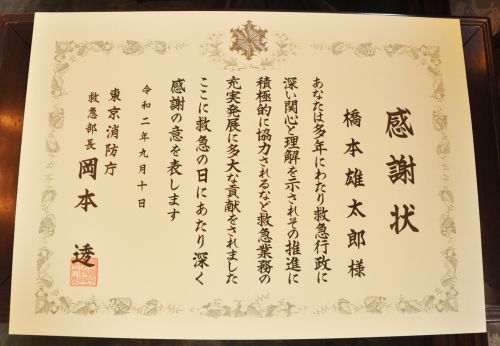 感謝状
橋本雄太郎様
あなたは多年にわたり救急行政に
深い関心と理解を示されその推進に
積極的に協力されるなど救急業務の
充実発展に多大な貢献をされました
ここに救急の日にあたり深く
感謝の意を表します
令和二年九月十日
東京消防庁
救急部長 岡本 透